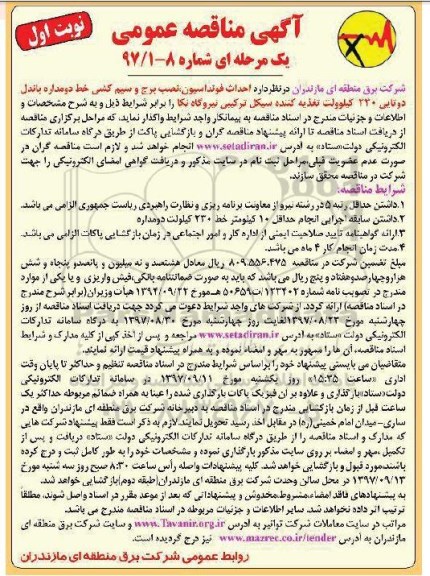 آگهی مناقصه عمومی
نوبت اول
یک مرحله ای شماره ۸-۹۷/۱
شرکت برق منطقه ای مازندران درنظردارد احداث فونداسیون،نصب برج و سیم کشی خط دومداره باندل
دوتایی ۲۳۰ کیلوولت تغذیه کننده سیکل ترکیبی نیروگاه نکا را برابر شرایط ذیل و به شرح مشخصات و
اطلاعات و جزئیات مندرج در اسناد مناقصه به پیمانکار واجد شرایط واگذار نماید، که مراحل برگزاری مناقصه
از دریافت اسناد مناقصه تا ارائه پیشنهاد مناقصه گران و بازگشایی پاکت از طریق درگاه سامانه تدارکات
الکترونیکی دولت«ستاد» به آدرس www.setadiran.ir انجام خواهد شد و لازم است مناقصه گران در
صورت عدم عضویت قبلی،مراحل ثبت نام در سایت مذکور و دریافت گواهی امضای الکترونیکی را جهت
شرکت در مناقصه محقق سازند.
شرایط مناقصه:
۱.داشتن حداقل رتبه ۵ در رشته نیرو از معاونت برنامه ریزی و نظارت راهبردی ریاست جمهوری الزامی می باشد.
۲.داشتن سابقه اجرایی انجام حداقل ۱۰ کیلومتر خط ۲۳۰ کیلوولت دومداره
۳.ارائه گواهینامه تأیید صلاحیت ایمنی از اداره کار و امور اجتماعی در زمان بازگشایی پاکات الزامی می باشد.
۴.مدت زمان انجام کار ۴ ماه می باشد.
مبلغ تضمین شرکت در مناقصه ۸۰۹.۵۵۶.۴۷۵ ریال معادل هشتصد و نه میلیون و پانصدو پنجاه و شش
هزاروچهارصدوهفتاد و پنج ریال می باشد که باید به صورت ضمانتنامه بانکی،فیش واریزی و یا یکی از موارد
مندرج در تصویب نامه شماره ۱۲۳۴۰۲/ت۵۰۶۵۹هـ مورخ ۱۳۹۴/۰۹/۲۲ هیأت وزیران(برابر شرح مندرج
در اسناد مناقصه) ارائه گردد. از شرکت های واجد شرایط دعوت می گردد جهت دریافت اسناد مناقصه از روز
چهارشنبه مورخ ۱۳۹۷/۰۸/۲۳لغایت روز چهارشنبه مورخ ۱۳۹۷/۰۸/۳۰ به درگاه سامانه تدارکات
الکترونیکی دولت «ستاد» به آدرس www.setadiran.ir مراجعه و پس از اخذ کپی از کلیه مدارک و شرایط
اسناد مناقصه، آن ها را ممهور به مهر و امضاء نموده و به همراه پیشنهاد قیمت ارائه نمایند.
متقاضیان می بایستی پیشنهاد خود را براساس شرایط مندرج در اسناد مناقصه تنظیم و حداکثر تا پایان وقت
اداری «ساعت ۱۵:۳۵» روز یکشنبه مورخ ۱۳۹۷/۰۹/۱۱ در سامانه تدارکات الکترونیکی
دولت«ستاد»بارگذاری و علاوه بر آن فیزیک پاکات بارگذاری شده را عینا به همراه ضمائم مربوطه حداکثر یک
ساعت قبل از زمان بازگشایی مندرج در اسناد مناقصه به دبیرخانه شرکت برق منطقه ای مازندران واقع در
ساری-میدان امام خمینی(ره) در مقابل اخذ رسید تحویل نمایند.لازم به ذکر است فقط پیشنهاد شرکت هایی
که مدارک و اسناد مناقصه را از طریق درگاه سامانه تدارکات الکترونیکی دولت «ستاد» دریافت و پس از
تکمیل،مهر و امضاء بر روی سایت مذکور بارگذاری نموده و مشخصات خود را به طور کامل ثبت و درج کرده
باشند،مورد قبول و بازگشایی خواهد شد. کلیه پیشنهادات واصله رأس ساعت ۸:۳۰ صبح روز سه شنبه مورخ
۱۳۹۷/۰۹/۱۳ در محل سالن وحدت شرکت برق منطقه ای مازندران(طبقه دوم)بازگشایی خواهد شد.
به پیشنهادهای فاقد امضاء،مشروط،مخدوش و پیشنهاداتی که بعد از موعد مقرر در اسناد واصل شوند، مطلقاً
ترتیب اثر داده نخواهد شد. سایر اطلاعات و جزئیات مربوطه در اسناد مناقصه مندرج می باشد.
مراتب در سایت معاملات شرکت توانیر به آدرس www.Tavanir.org.ir و سایت شرکت برق منطقه ای
مازندران به آدرس www.mazrec.co.ir/tender نیز درج گردیده است.
روابط عمومی شرکت برق منطقه ای مازندران